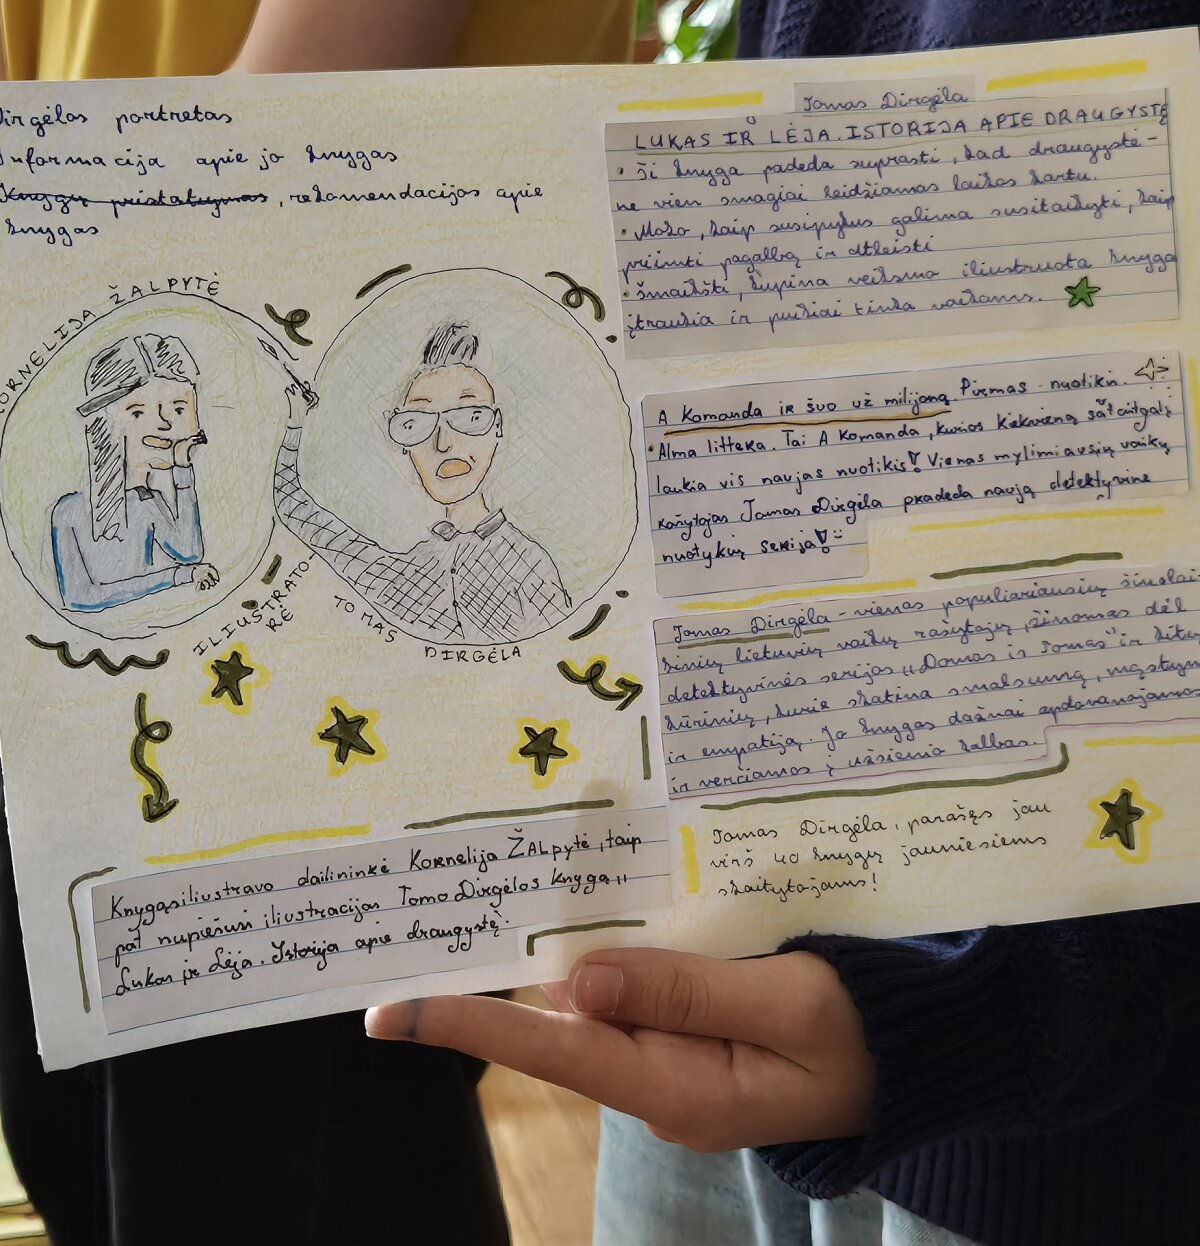 Dirgėlos portretas
Informacija apie jo knygas
Knygų pristatymas, rekomendacijos apie
knygas
KORNELIJA ŽALPYTĖ
ILIUSTRATO-
RĖ
TOMAS
DIRGĖLA
Knygąsiliustravo dailininkė Kornelija ŽALpytė, taip
pat nupiešusi iliustracijas Tomo Dirgėlos knygą,,
Lukas ir Lėja. Istorija apie draugystę.
Tomas Dirgėla
LUKAS IR LĖJA. ISTORIJA APIE DRAUGYSTĘ
• Ši knyga padeda suprasti, kad draugystė -
ne vien smagiai leidžiamas laikas kartu.
• Moko, kaip susipykus galima susitaikyti, kaip
priimti pagalbą ir atleisti
• Šmaikšti, kupina veiksmo iliustruota knyga
įtraukia ir puikiai tinka vaikams.
A Komanda ir šuo už milijoną. Pirmas nuotikis.
• Alma littera. Tai A Komanda, kurios kiekvieną
laukia vis naujas nuotikis! Vienas mylimiausių vaikų
rašytojas Tomas Dirgėla pradeda naują detektyvinę
nuotykių seriją! :)
Tomas Dirgėla - vienas populiariausių šiuolai-
kinių lietuvių vaikų rašytojų, žinomas dėl
detektyvinės serijos ,,Domas ir Tomas" ir kitų
kūrinių, kurie skatina smalsumą, mąstymą
ir empatiją. Jo knygos dažnai apdovanojamos
ir verčiamos į užsienio kalbas.
Tomas Dirgėla, parašęs jau
virš 40 knygų jauniesiems
skaitytojams!